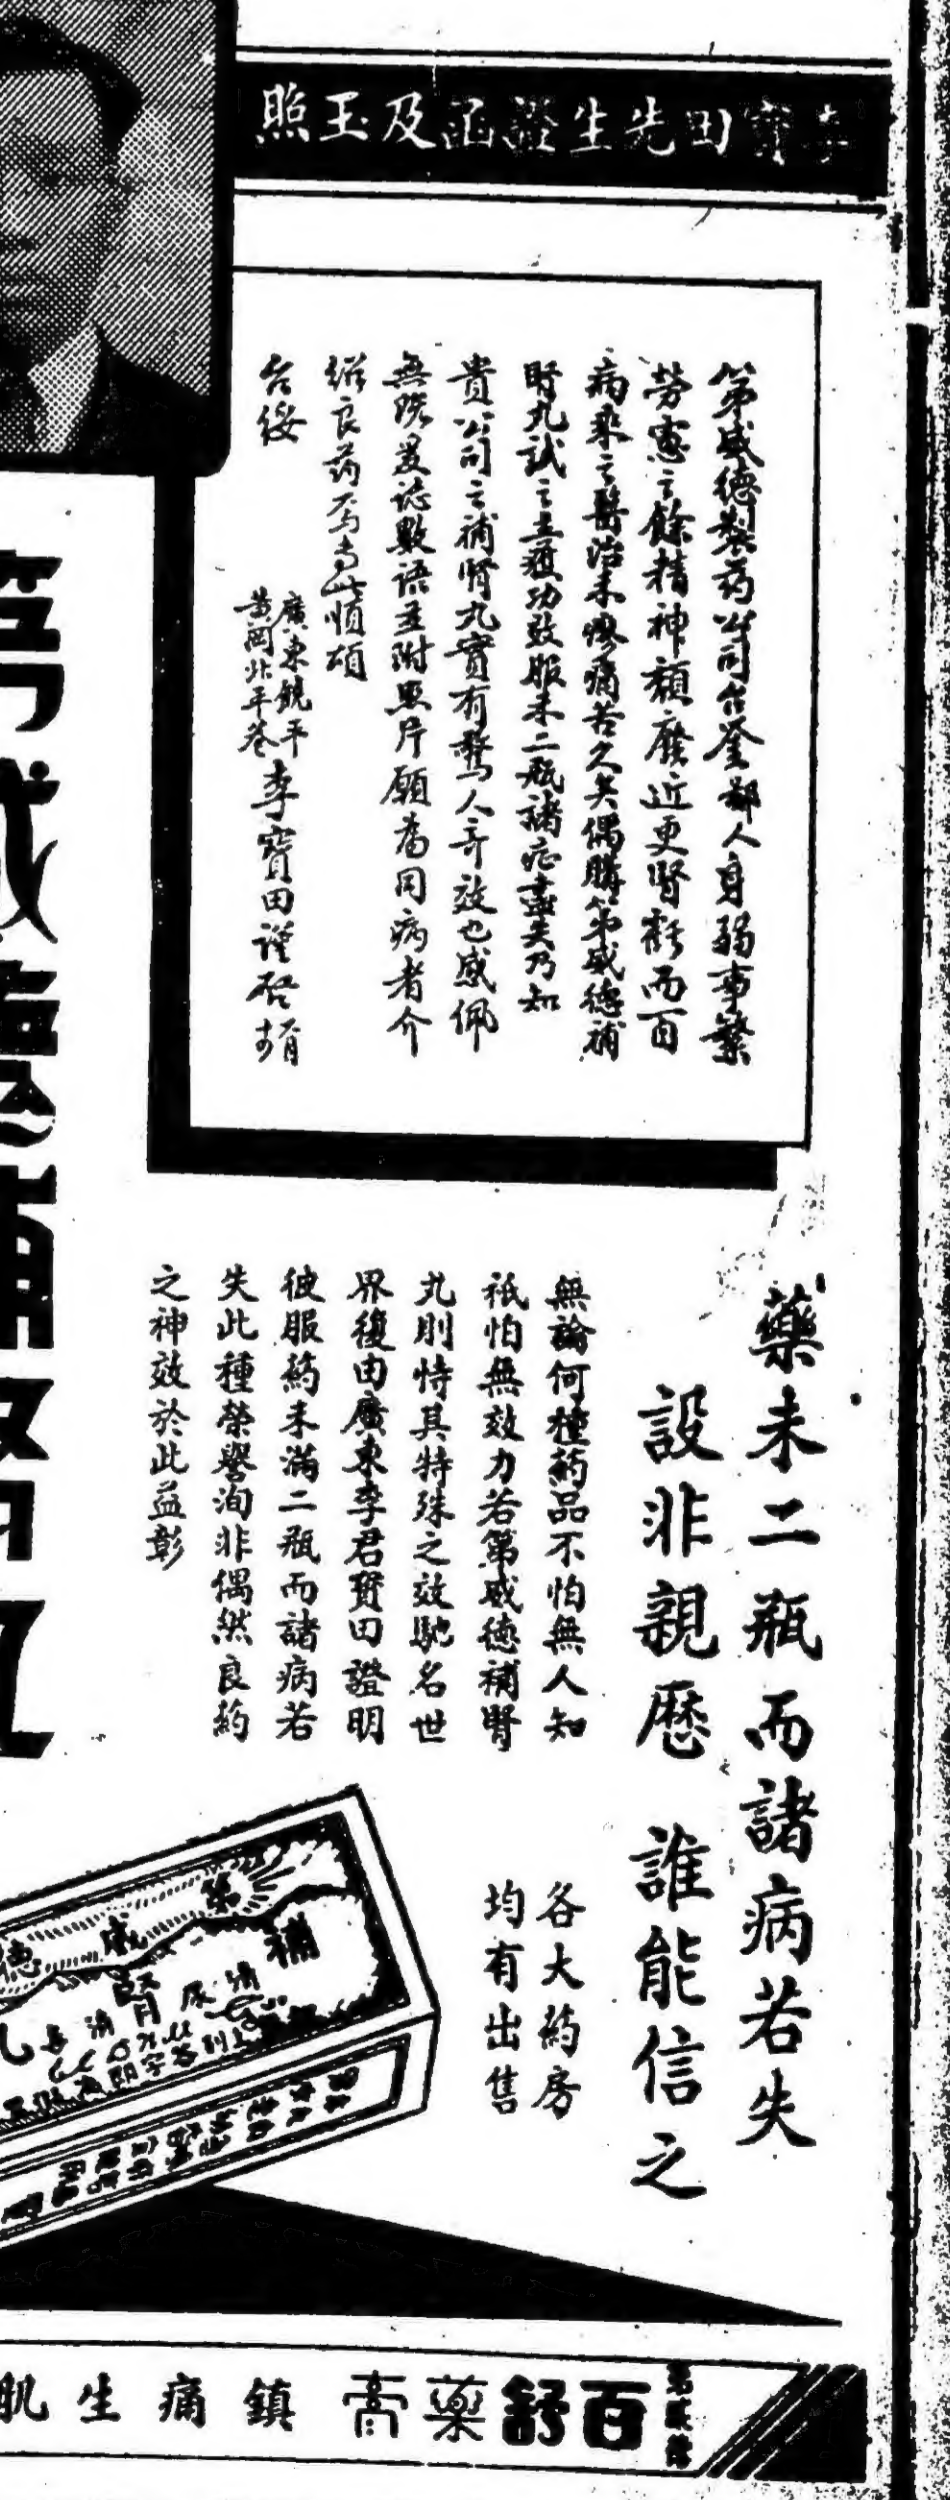 李寶田先生證函及玉照
第威德製药公司台鉴鄙人身弱事繁
劳慮之餘精神頽廢近更腎虧而百
病来之醫治未瘳痛苦久矣偶購第威德補
腎丸試之立獲功效服未二瓶諸症盡失乃知
貴公司之補腎丸實有驚人奇效也感佩
無既爰誌數語並附照片願為同病者介
紹良药焉耑此順頌
台绥
廣東饒平
黄岡北平巷
李寶田謹啓
藥未二瓶而諸病若失
設非親歷 誰能信之
無論何種药品不怕無人知
祇怕無效力若第威德補腎
丸則恃其特殊之效馳名世
界復由廣東李君寶田證明
彼服药未滿二瓶而諸病若
失此種榮譽洵非偶然良药
之神效於此益彰
各大药房
均有出售
第威德補腎丸
第威德
補腎丸
第威德
百舒藥膏
鎮痛生肌